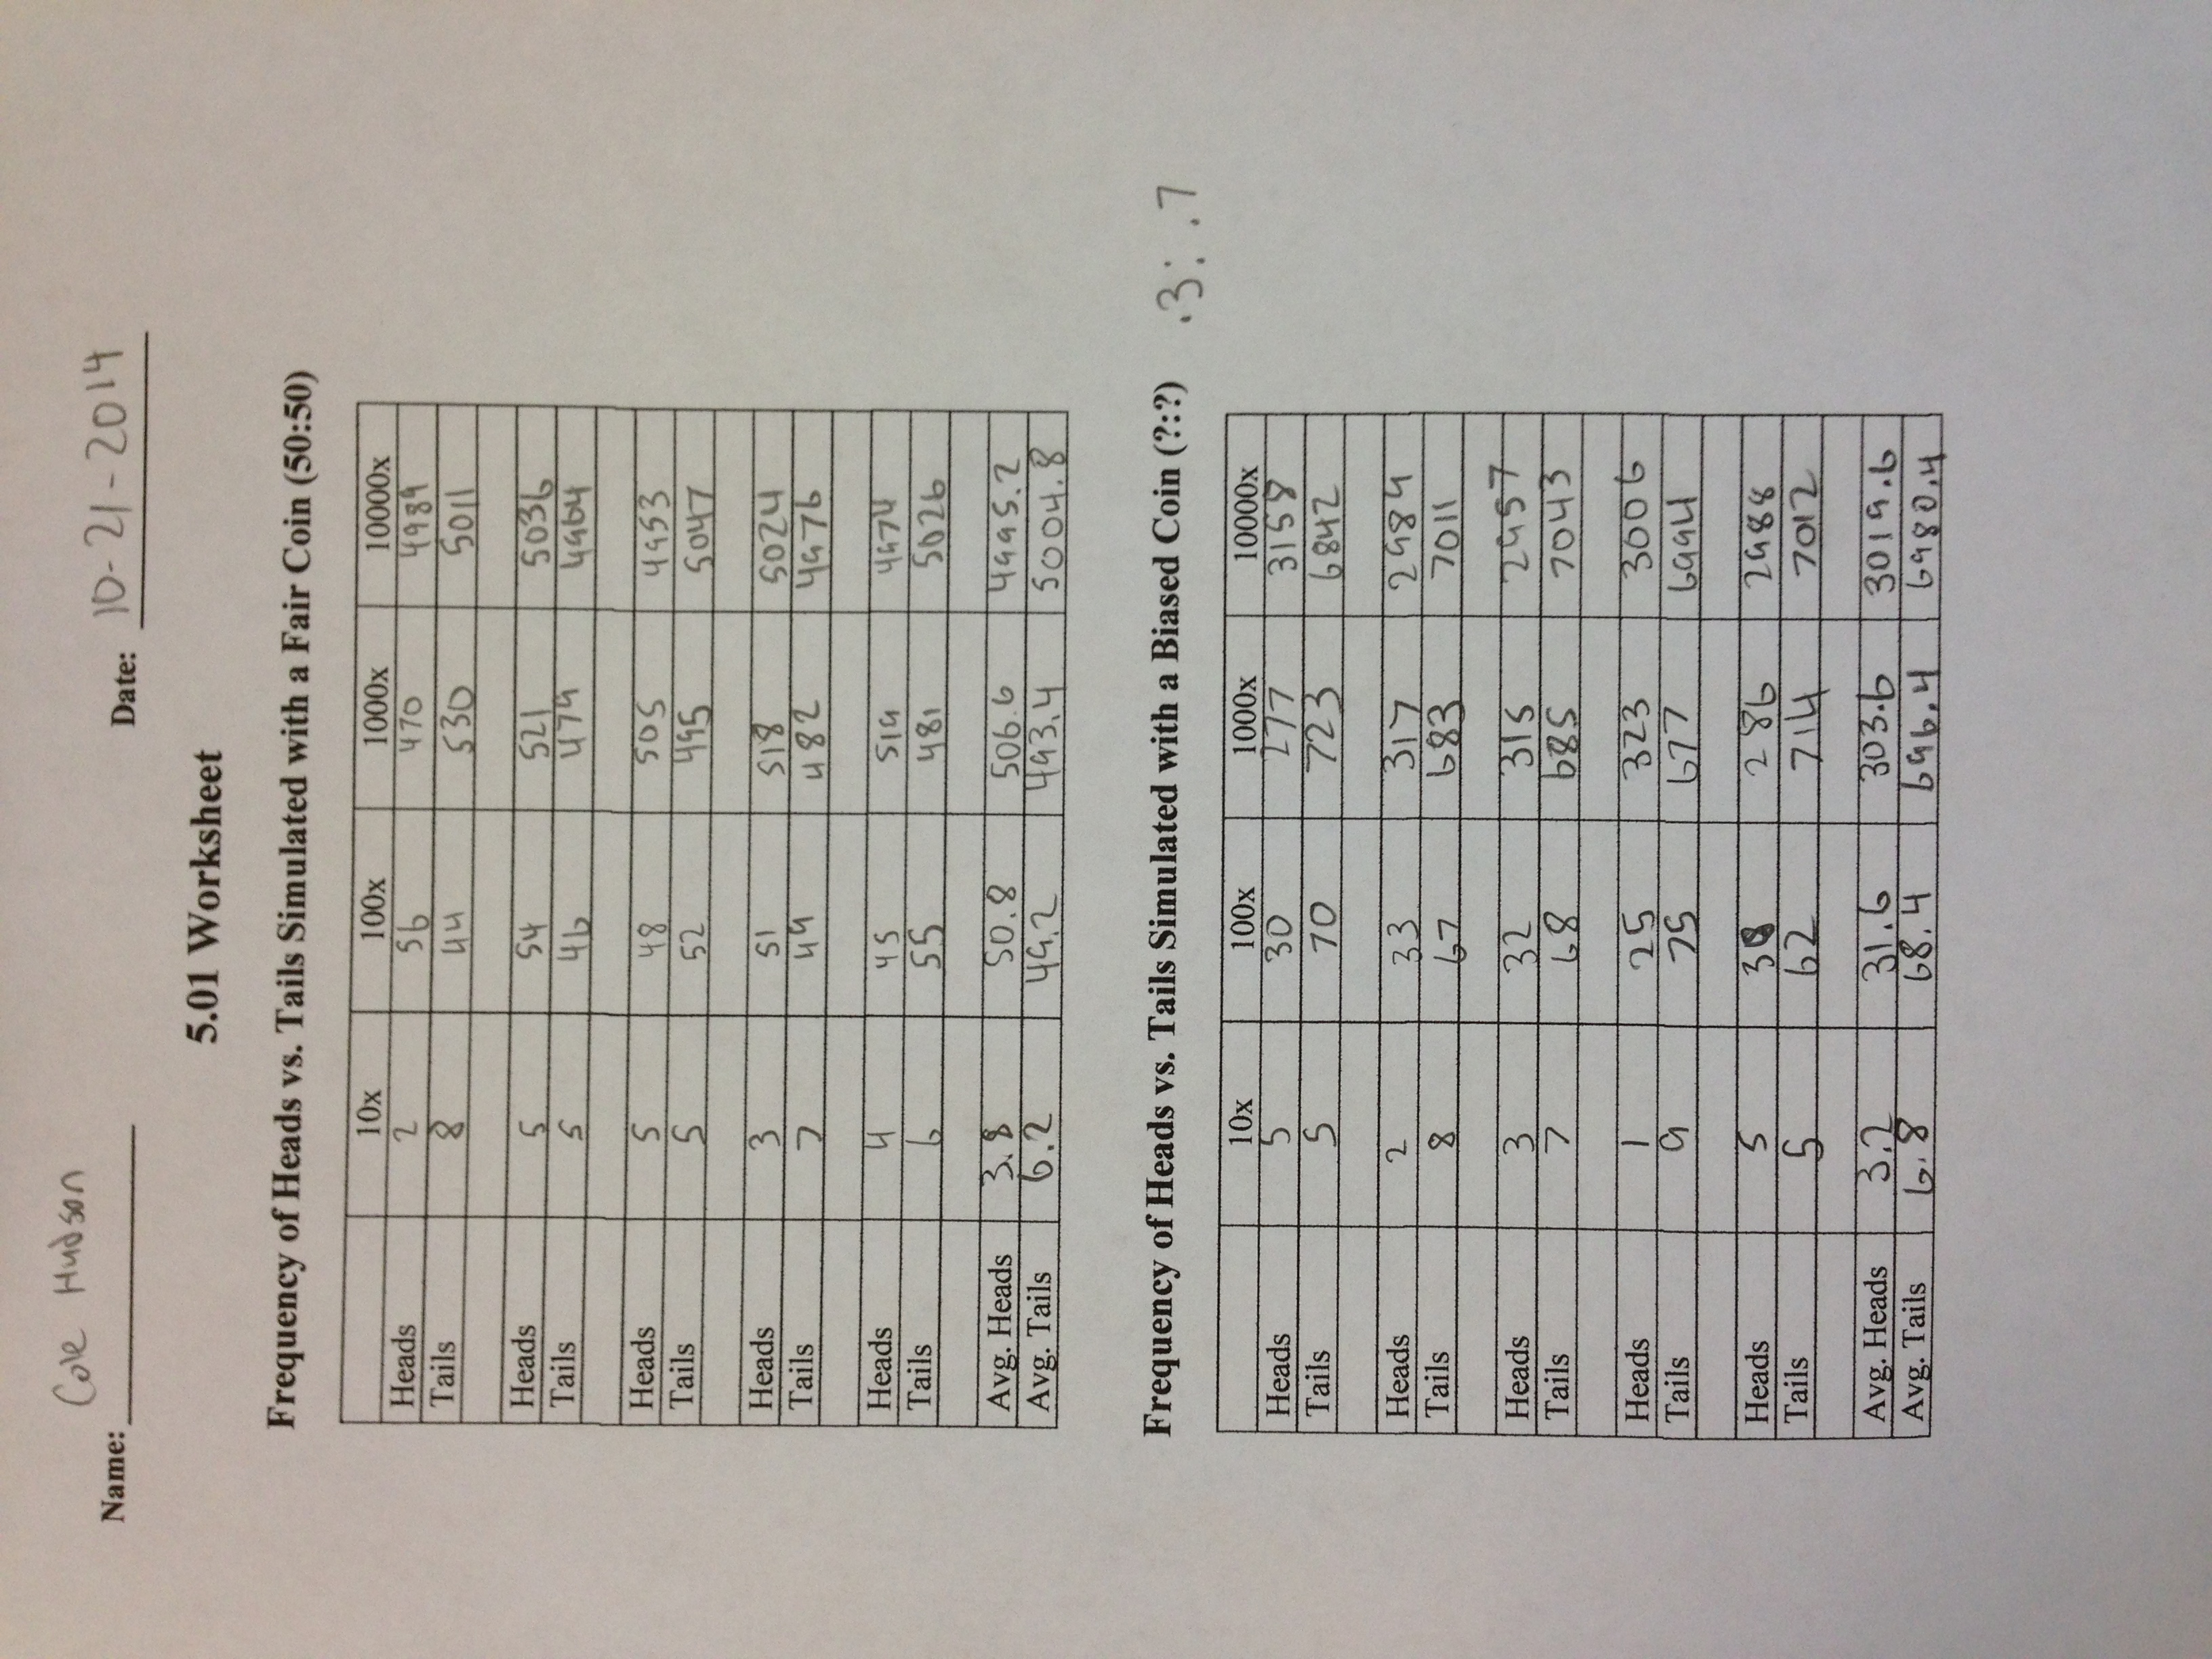 Cole Hudson
Name: Date: 10-21-2014
5.01 Worksheet
Frequency of Heads vs. Tails Simulated with a Fair Coin (50:50)
10x 100x 1000x 10000x
Heads 2 56 470 4989
Tails 8 44 530 5011
Heads 5 54 521 5036
Tails 5 46 479 4964
Heads 5 48 505 4953
Tails 5 52 495 5047
Heads 3 51 518 5024
Tails 7 49 482 4976
Heads 4 45 519 4974
Tails 6 55 481 5026
Avg. Heads 3.8 50.8 506.6 4995.2
Avg. Tails 6.2 49.2 493.4 5004.8
Frequency of Heads vs. Tails Simulated with a Biased Coin (?:?) .3: .7
10x 100x 1000x 10000x
Heads 5 30 277 3158
Tails 5 70 723 6842
Heads 2 33 317 2989
Tails 8 67 683 7011
Heads 3 32 315 2957
Tails 7 68 685 7043
Heads 1 25 323 3006
Tails 9 75 677 6994
Heads 5 38 286 2988
Tails 5 62 714 7012
Avg. Heads 3.2 31.6 303.6 3019.6
Avg. Tails 6.8 68.4 696.4 6980.4